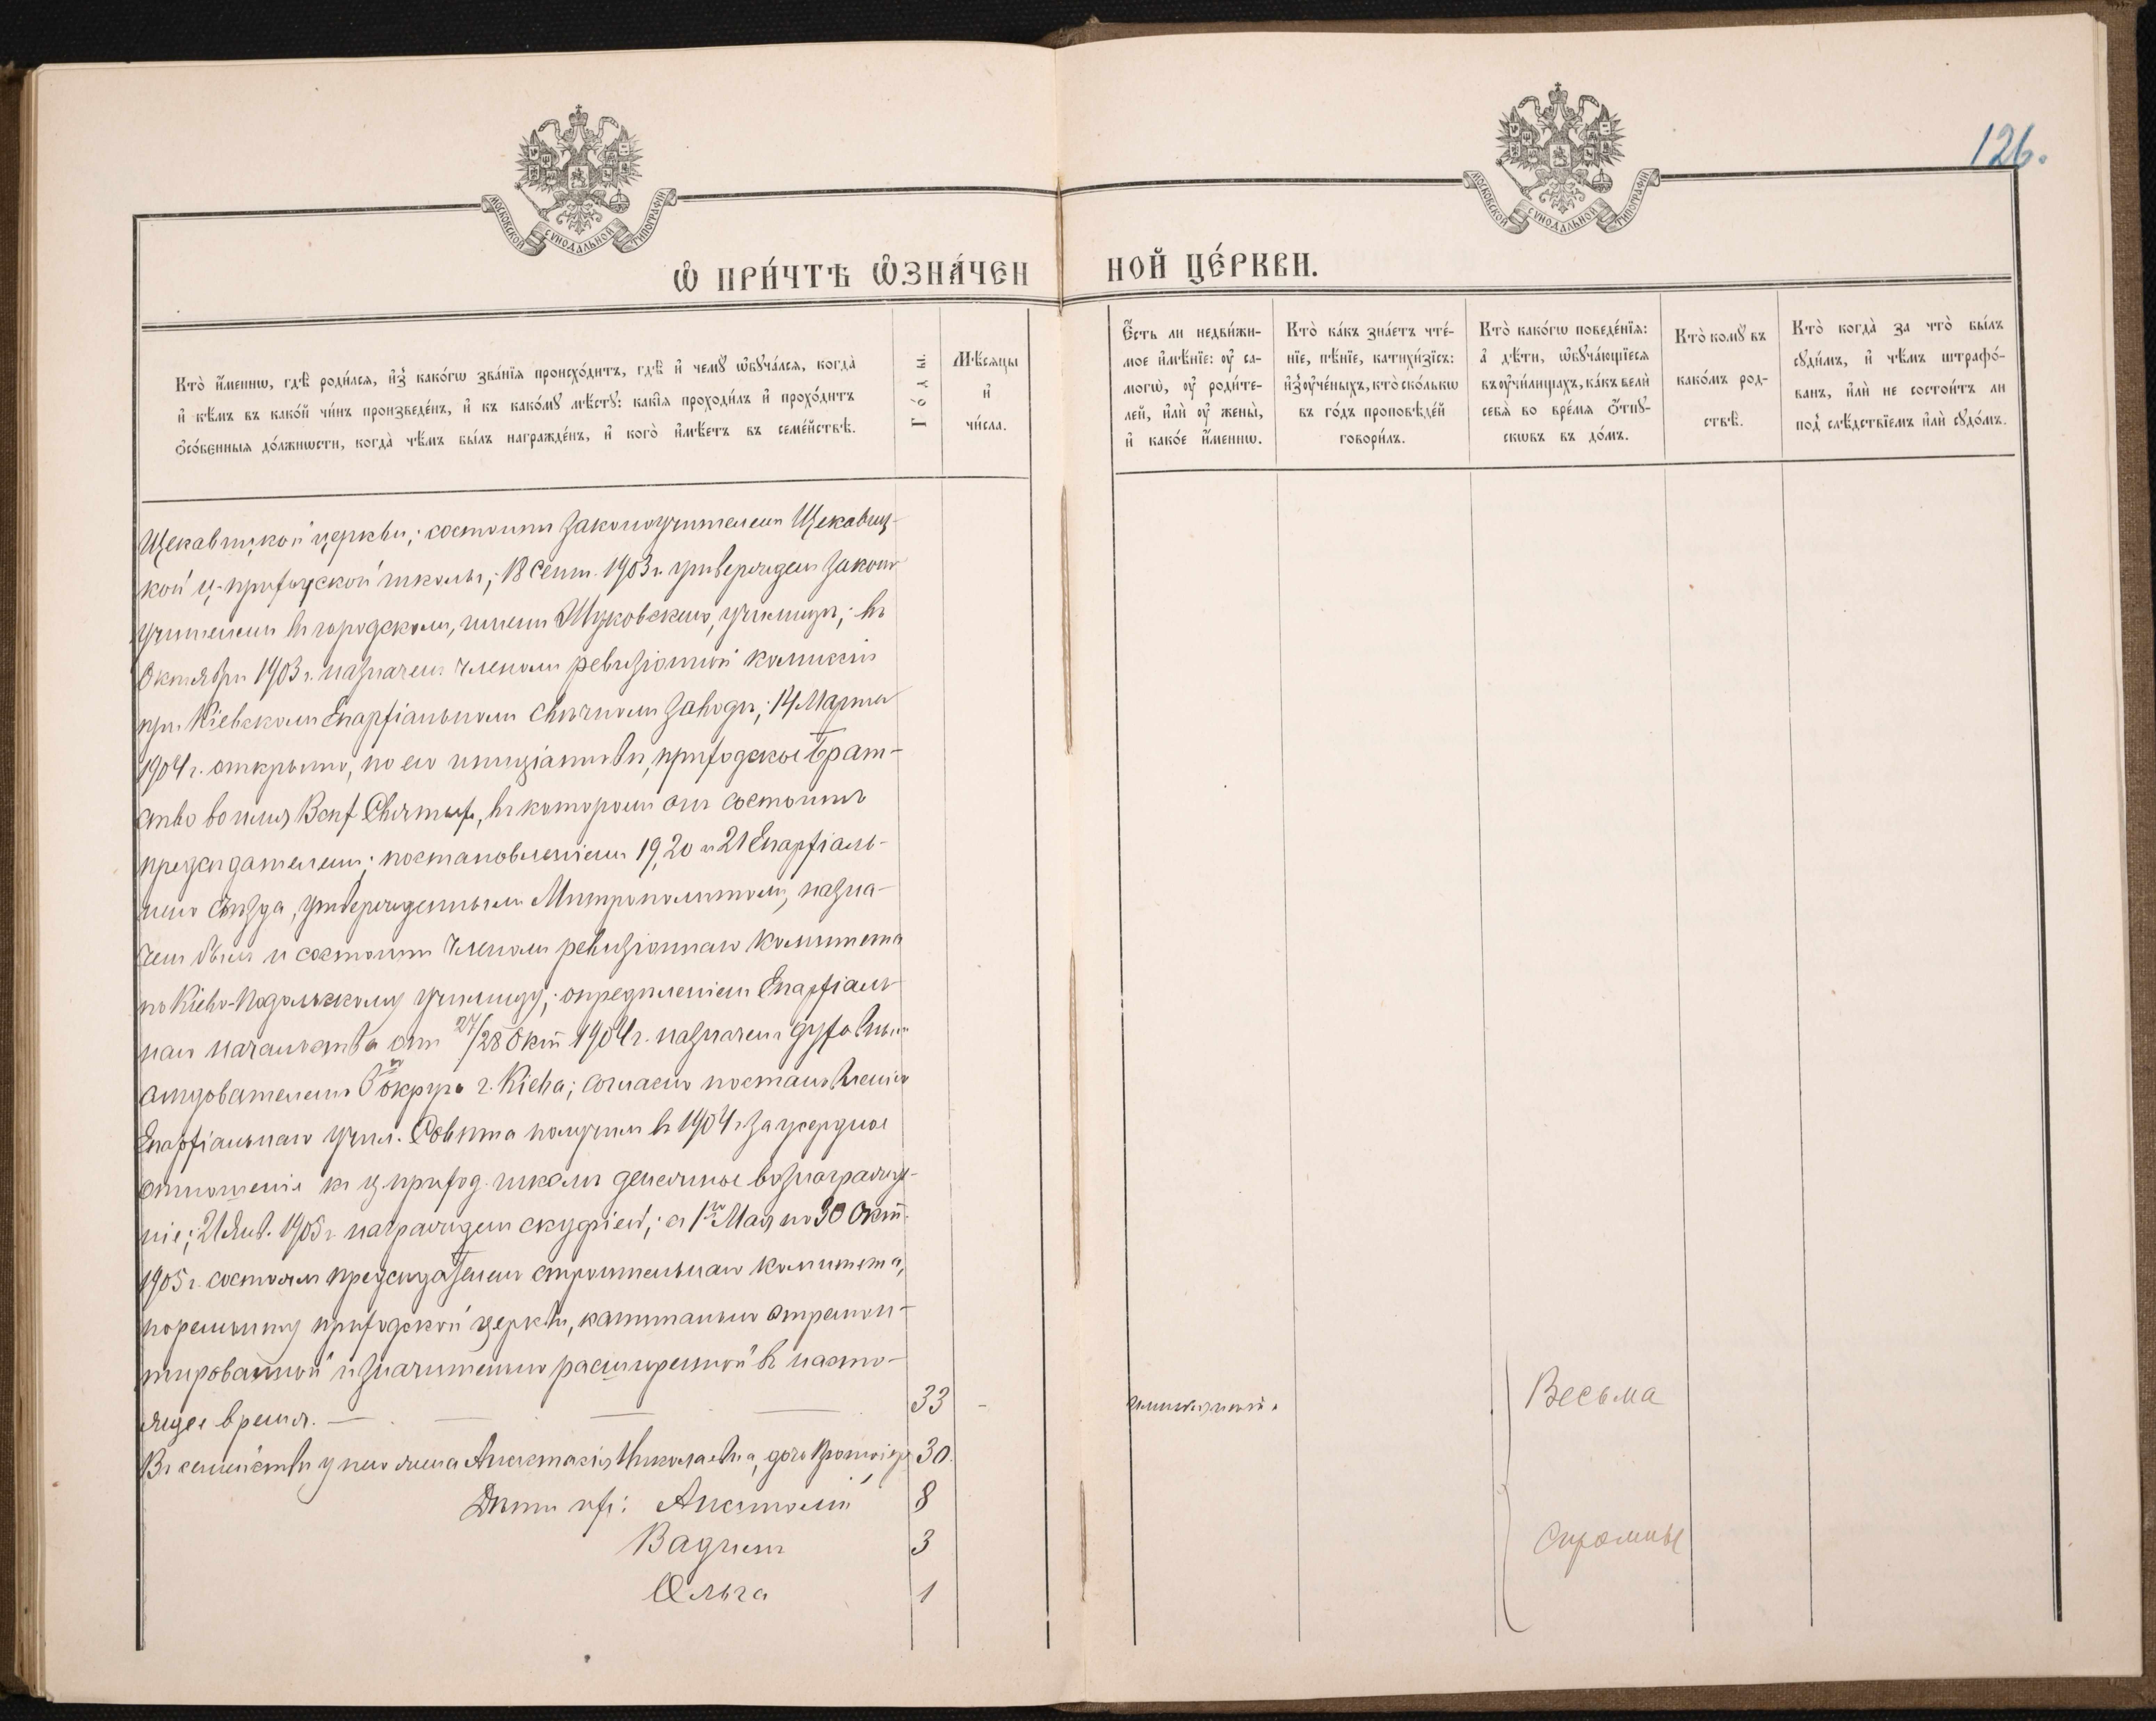 126.
МОСКОВСКОЙ СѴНОДАЛЬНОЙ ТИПОГРАФІИ
МОСКОВСКОЙ СѴНОДАЛЬНОЙ ТИПОГРАФІИ
Ѡ ПРИ́ЧТѢ Ѡ҆ЗНА́ЧЕННОЙ ЦЕ́РКВИ.
Кто̀ и҆́менно, гдѣ̀ роди́лся, и҆з̾ како́гѡ зва́нїѧ происхо́дитъ, гдѣ̀ и҆ чемꙋ̀ ѡ҆бꙋча́лся, когда̀
и҆ кѣ́мъ въ како́й чи́нъ произведе́нъ, и҆ къ како́мꙋ мѣ́стꙋ: какі́ѧ проходи́лъ и҆ прохо́дитъ
ѻ҆со́бенныѧ до́лжнѡсти, когда̀ чѣ́мъ бы́лъ награжде́нъ, и҆ кого̀ и҆мѣ́етъ въ семе́йствѣ.
Го́ды.
Мѣ́сяцы
и҆
чи́сла.
Є҆́сть ли недви́жи-
мое и҆мѣ́нїе: ᲂу҆ са-
могѡ̀, ᲂу҆ роди́те-
лей, и҆лѝ ᲂу҆ жены̀,
и҆ како́е и҆́менно.
Кто̀ ка́къ зна́етъ чте́-
нїе, пѣ́нїе, катихи́зїсъ:
и҆з̾ ᲂу҆че́ныхъ, кто̀ ско́лькѡ
въ го́дъ проповѣ́дей
говори́лъ.
Кто̀ како́гѡ поведе́нїѧ:
а҆ дѣ́ти, ѡ҆бꙋча́ющїесѧ
въ ᲂу҆чи́лищахъ, ка́къ велѝ
себѧ̀ во вре́мѧ ѻ҆́тпꙋ-
скѡвъ въ до́мъ.
Кто̀ комꙋ̀ въ
како́мъ род-
ствѣ̀.
Кто̀ когда̀ за что̀ бы́лъ
сꙋди́мъ, и҆ чѣ́мъ штрафо́-
ванъ, и҆лѝ не состои́тъ ли
под̾ слѣ́дствїемъ и҆лѝ сꙋдо́мъ.
Щекавицкой церкви; состоитъ законоучителемъ Щекавиц-
кой ц.-приходской школы; 18 Сент. 1903 г. утвержденъ законо-
учителемъ въ городскомъ, имени Жуковскаго, училищѣ; въ
Октябрѣ 1903 г. назначенъ членомъ ревизіонной комиссіи
при Кіевскомъ Епархіальномъ свѣчномъ заводѣ; 14 Марта
1904 г. открыто, по его иниціативѣ, приходское Брат-
ство во имя Всѣхъ Святыхъ, въ которомъ онъ состоитъ
предсѣдателемъ; постановленіемъ 19, 20 и 21 Епархіаль-
наго съѣзда, утвержденнымъ Митрополитомъ, назна-
ченъ былъ и состоитъ членомъ ревизіоннаго комитета
по Кіево-Подольскому училищу; опредѣленіемъ Епархіаль-
наго начальства отъ 27/28 Окт. 1904 г. назначенъ духовнымъ
слѣдователемъ округа г. Кіева; согласно постановленію
Епархіальнаго Учил. Совѣта получилъ въ 1904 г. за усердное
отношеніе къ ц. приход. школѣ денежное вознагражде-
ніе; 21 Янв. 1905 г. награжденъ скуфіею; съ 1го Мая по 30 Окт.
1905 г. состоялъ предсѣдателемъ строительнаго комитета,
по ремонту приходской церкви, капитально отремон-
тированной и значительно расширенной въ насто-
ящее время. — 33 –
Въ семействѣ у него жена Анастасія Николаевна, дочь Протоіер. 30.
Дѣти ихъ: Анатолій 8
Вадимъ 3
Ольга 1
Весьма
скромные